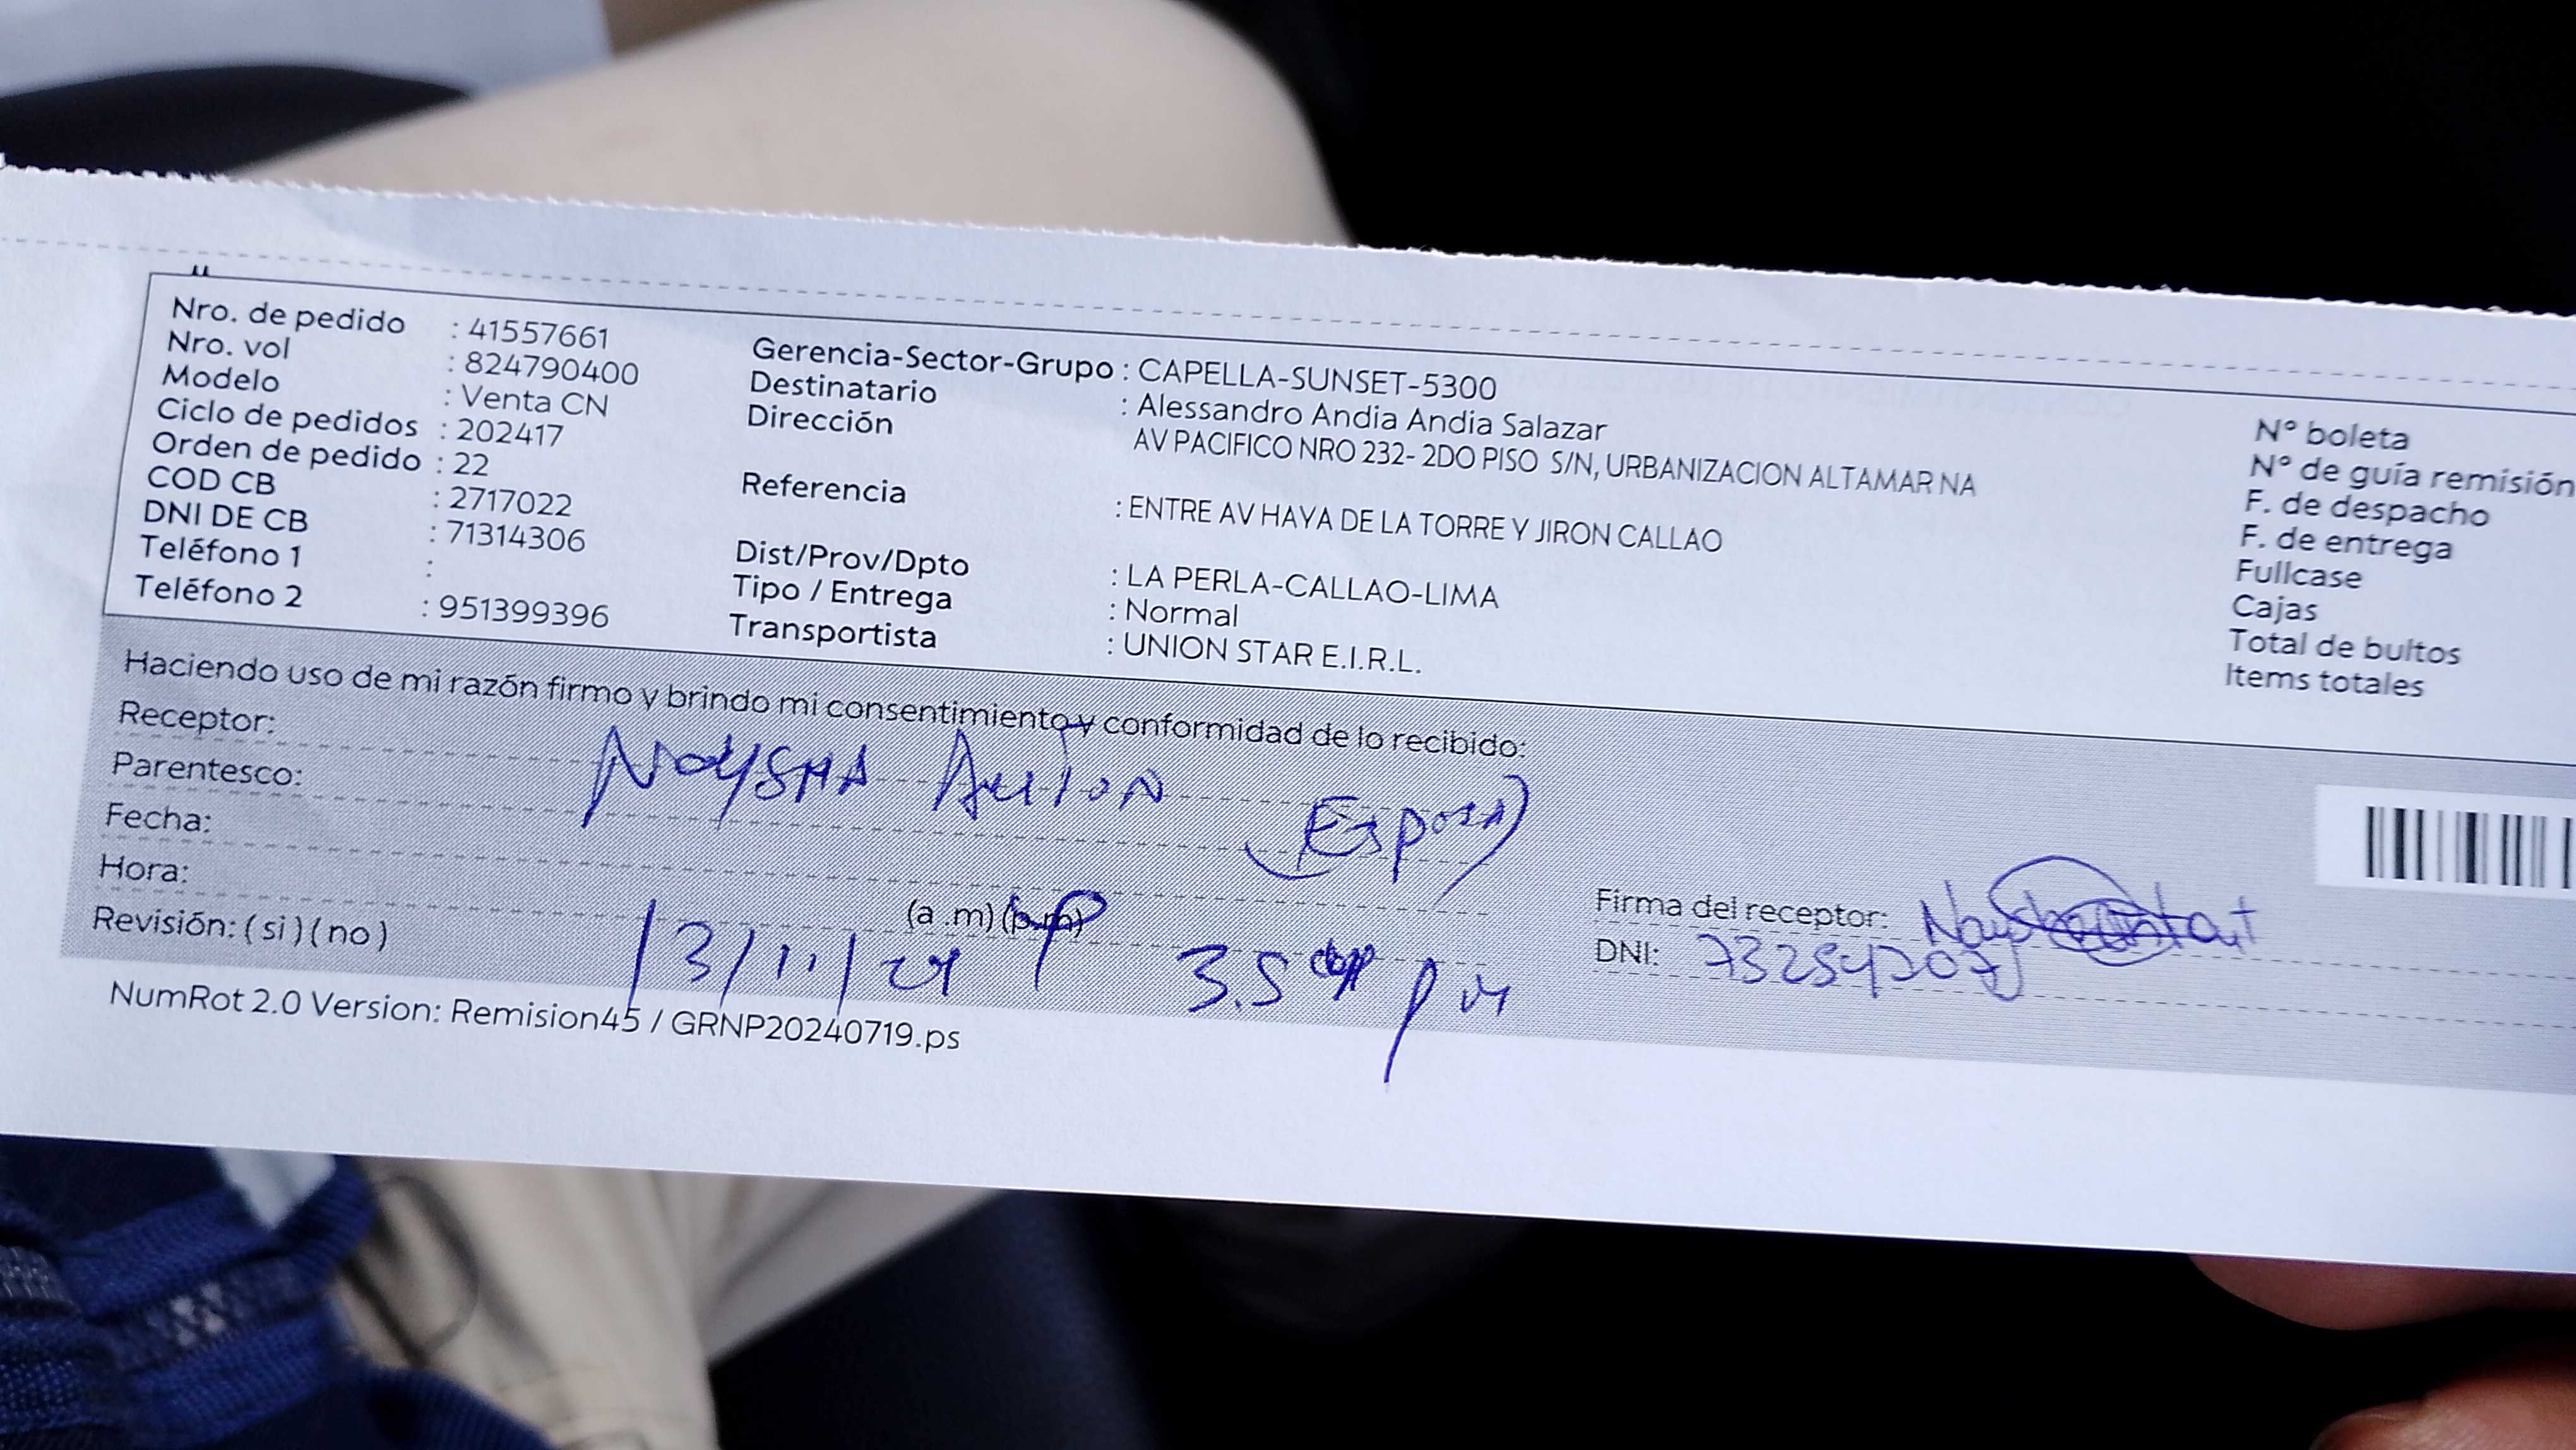 Nro. de pedido : 41557661
Nro. vol : 824790400
Modelo : Venta CN
Ciclo de pedidos : 202417
Orden de pedido : 22
COD CB : 2717022
DNI DE CB : 71314306
Teléfono 1 :
Teléfono 2 : 951399396
Gerencia-Sector-Grupo : CAPELLA-SUNSET-5300
Destinatario : Alessandro Andia Andia Salazar
Dirección AV PACIFICO NRO 232- 2DO PISO S/N, URBANIZACION ALTAMAR NA
Referencia : ENTRE AV HAYA DE LA TORRE Y JIRON CALLAO
Dist/Prov/Dpto : LA PERLA-CALLAO-LIMA
Tipo / Entrega : Normal
Transportista : UNION STAR E.I.R.L.
N° boleta
N° de guía remisión
F. de despacho
F. de entrega
Fullcase
Cajas
Total de bultos
Items totales
Haciendo uso de mi razón firmo y brindo mi consentimiento y conformidad de lo recibido:
Receptor: NAYSHA
Parentesco: (Esposa)
Fecha: 13/11/24
Hora: (a .m) (p.m) pm
Revisión: ( si ) ( no )
Firma del receptor:
DNI:
NumRot 2.0 Version: Remision45 / GRNP20240719.ps